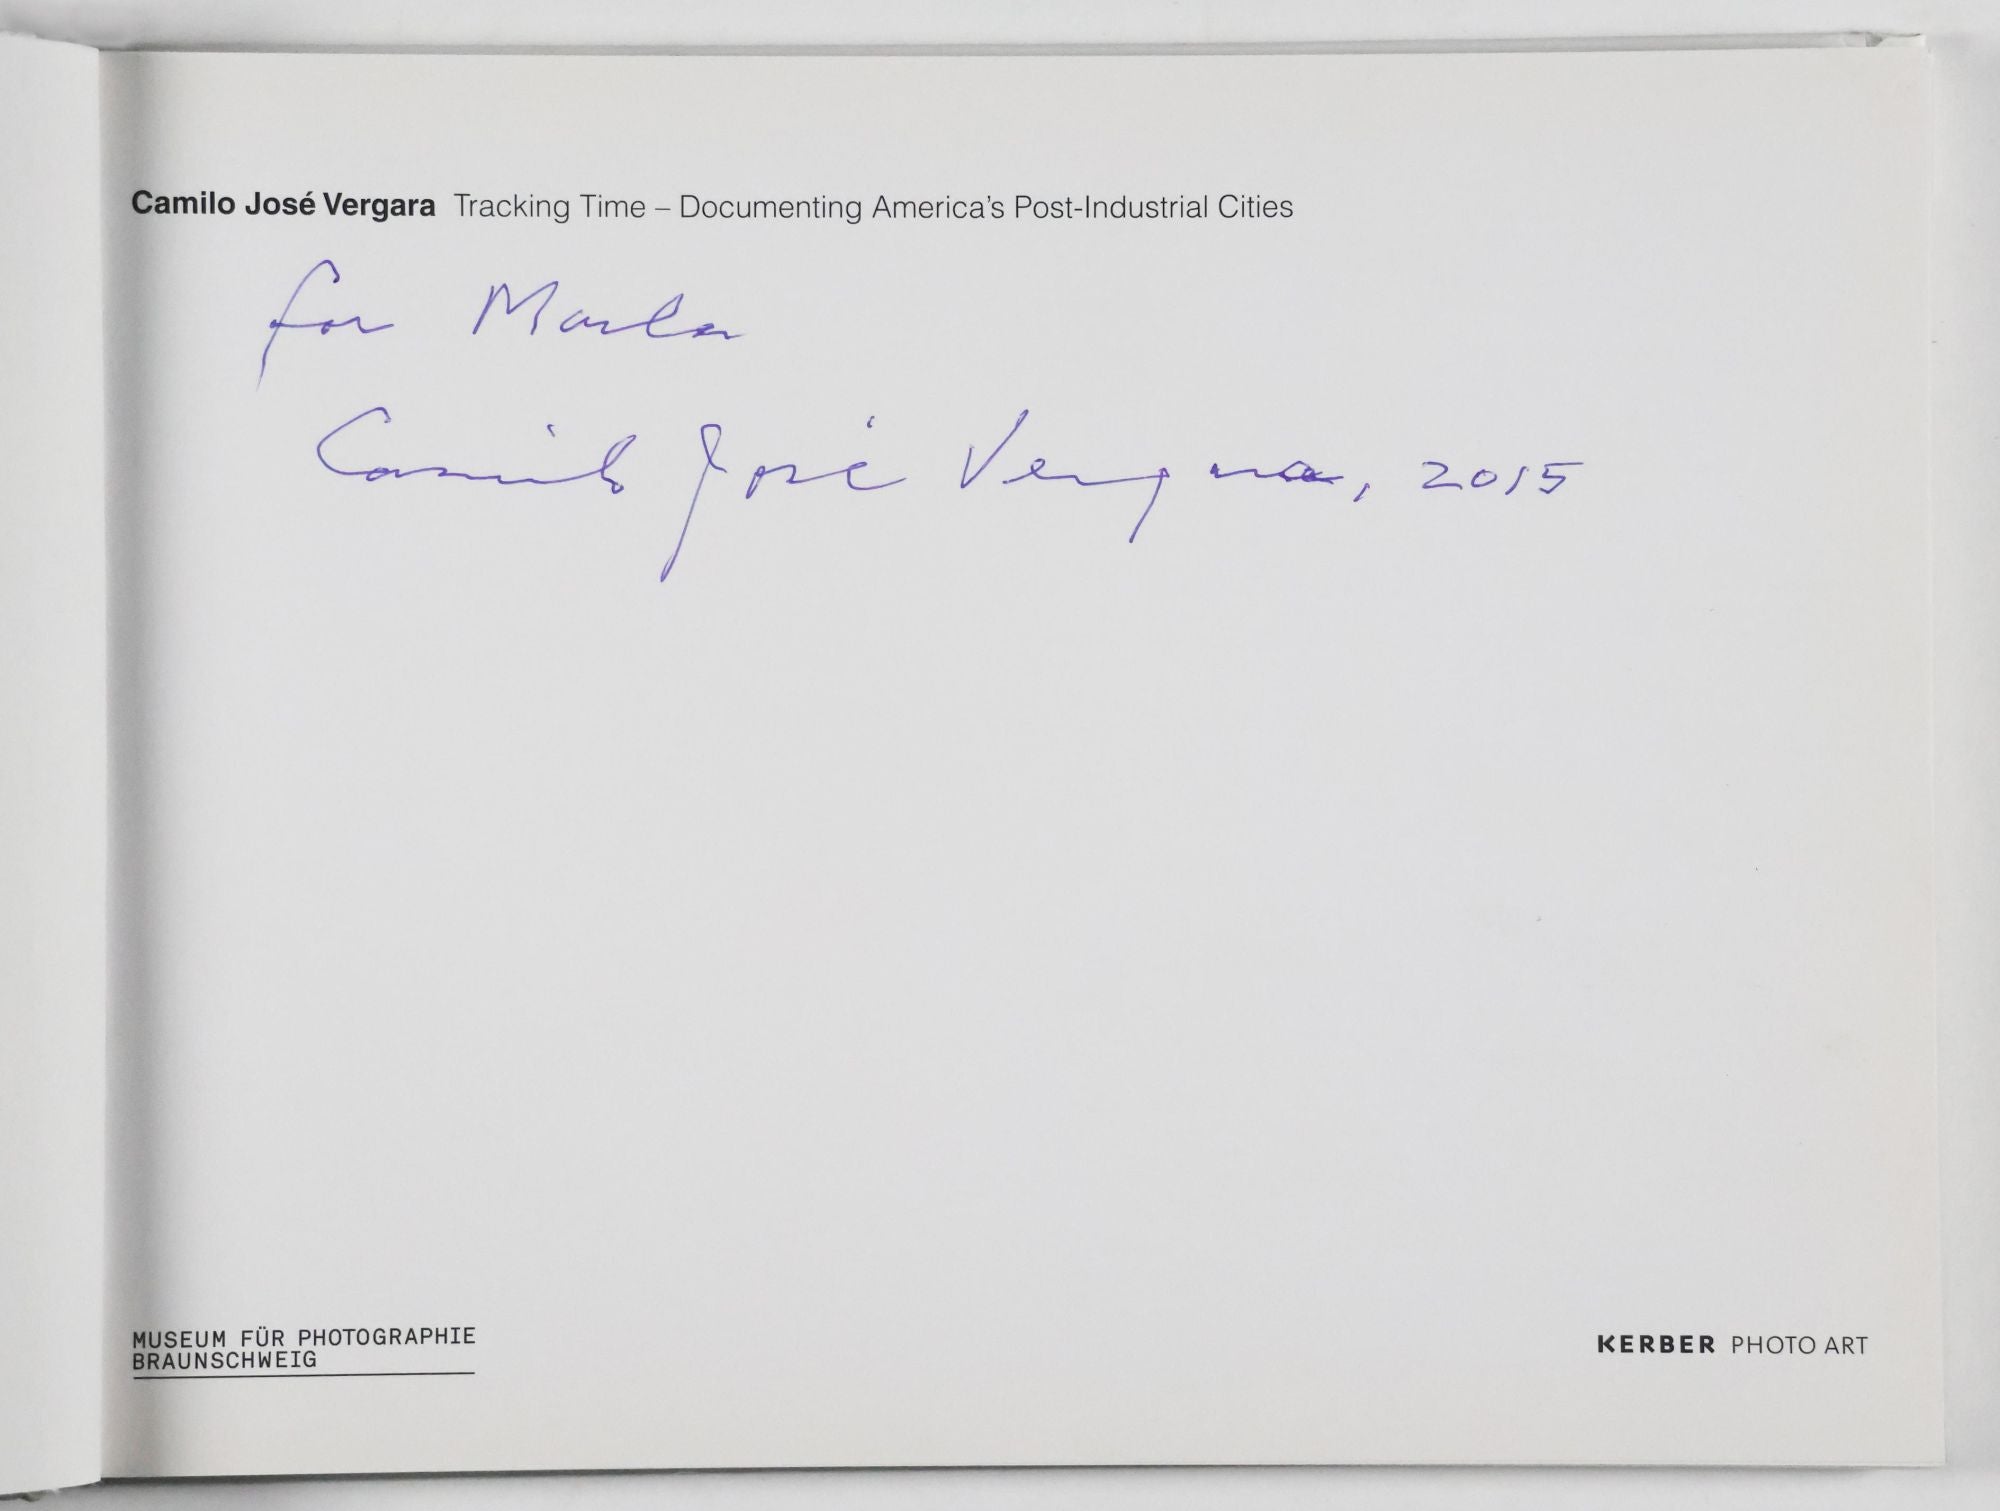 Camilo José Vergara Tracking Time – Documenting America's Post-Industrial Cities
for Marla
Camilo José Vergara, 2015
MUSEUM FÜR PHOTOGRAPHIE
BRAUNSCHWEIG
KERBER PHOTO ART